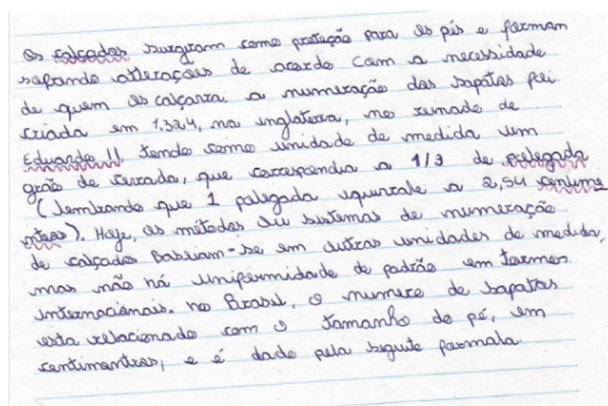 Os calçados surgiram como proteção para os pés e formam
sofrando alterações de acordo com a necessidade
de quem os calçava. a numeração dos sapatos foi
criada em 1.324, na inglaterra, no reinado de
Eduardo II. tendo como unidade de medida um
grão de cevada, que correspondia a 1/3 de polegada
(lembrando que 1 polegada equivale a 2,54 centime
ntros). Hoje, os métodos ou sistemas de numeração
de calçados Basiam-se em outras unidades de medida,
mas não há uniformidade de padrão em termos
internacionais. no Brasil, o numero de sapatos
esta relacionado com o tamanho do pé, em
centimentros, e é dado pela seguite formala